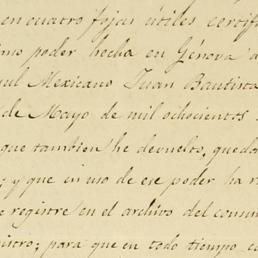 en cuatro fojas útiles certifi
mo poder hecha en Génova a
sul Mexicano Juan Bautista
de Mayo de mil ochocientos
que tambien he devuelto, qued
; y que en uso de ese poder ha r
e registre en el archivo del consu
istro; para que en todo tiempo co